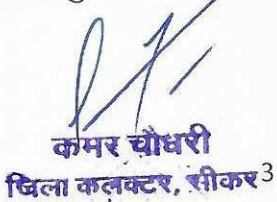 कमर चौधरी
जिला कलक्टर, सीकर 3